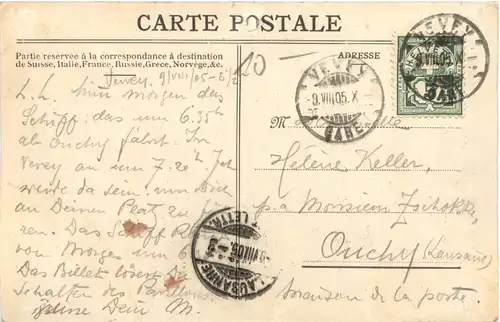 CARTE POSTALE
Partie reservée à la correspondance à destination
de Suisse, Italie, France, Russie, Grece, Norvége, &c.
ADRESSE
Vevey. 9/VIII/05 -
L. L. Nimm morgen das
Schiff, das um 6.35
ab Ouchy fährt. In
Vevey an um 7.20 Ich
werde da sein, um Dich
an Deinen Platz zu füh
ren. Das Schiff
von Morges um 6
Das Billet lösest Du
Schalter des
Dein M.
10
M
Hélène Keller,
p. a Monsieur Zschokke,
Ouchy (Lausanne)
maison de la poste.
VEVEY
9.VIII.05.X
GARE
VEVEY
9.VIII.05.X
GARE
LAUSANNE
9.VIII.05
LETTR